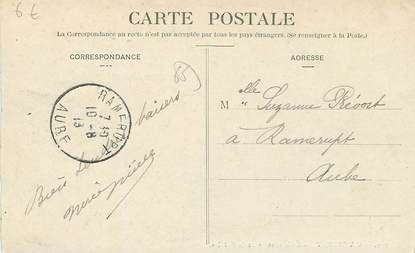 6 €
CARTE POSTALE
La Correspondance au recto n'est pas acceptée par tous les pays étrangers (Se renseigner à la Poste).
CORRESPONDANCE
ADRESSE
85
RAMERUPT
7-10
10-8
13
AUBE
Bien baisers
M elle Suzanne Prévost
à Ramerupt
Aube